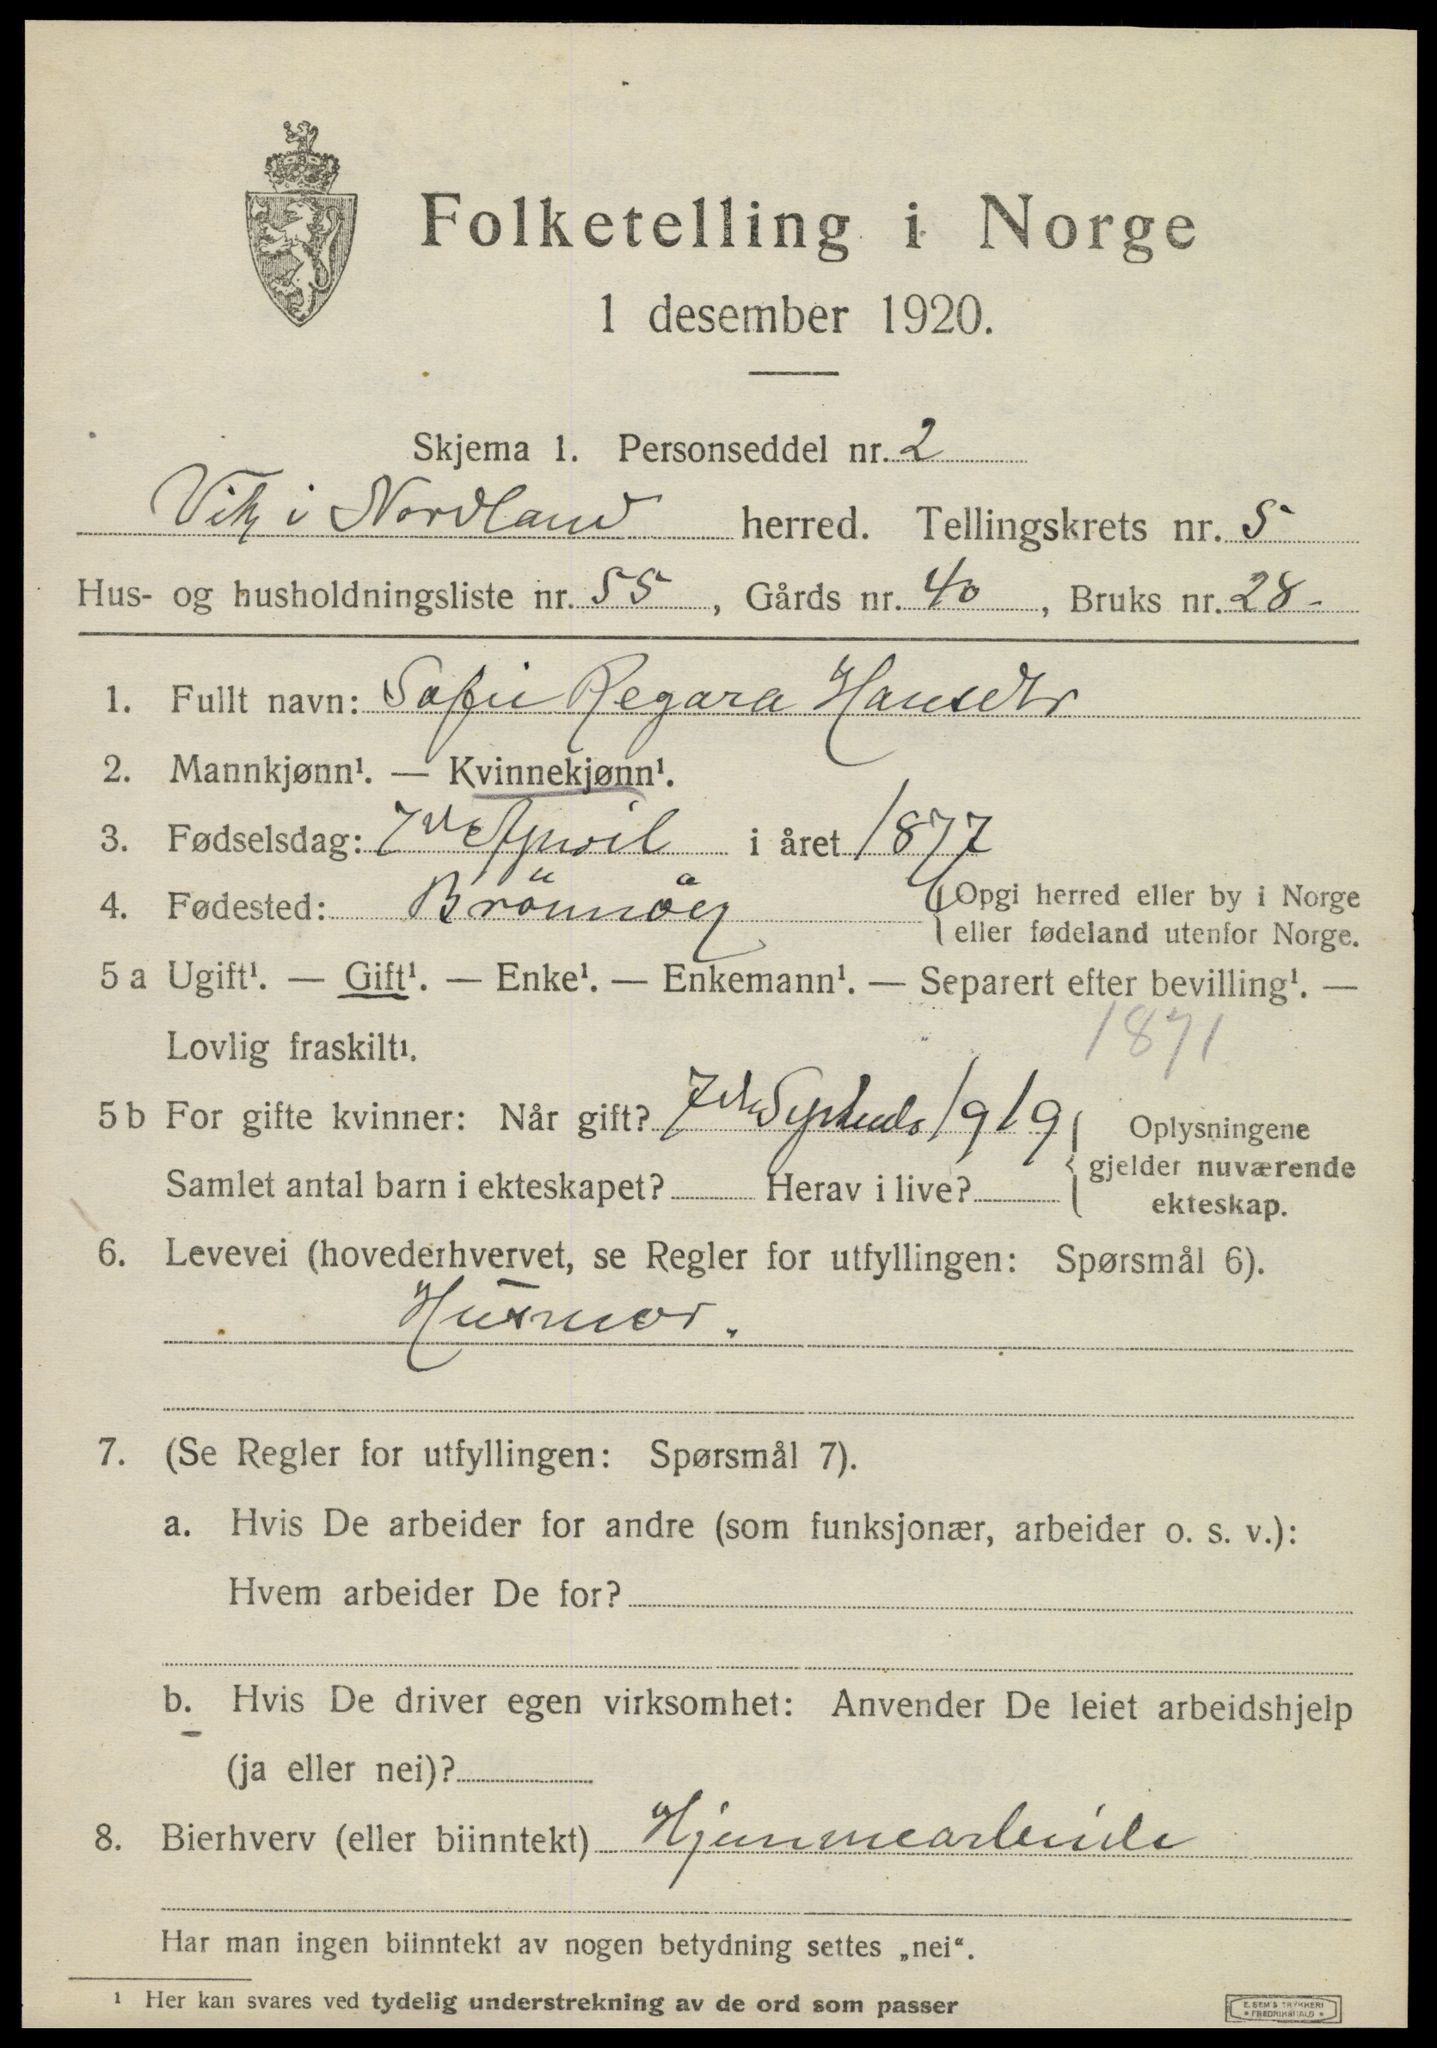 Folketelling i Norge
1 desember 1920.
Skjema 1. Personseddel nr. 2
Vik i Nordland herred. Tellingskrets nr. 5
Hus- og husholdningsliste nr. 55, Gårds nr. 40, Bruks nr. 28-
1. Fullt navn: Sofie Regara Hansdtr
2. Mannkjønn¹. — Kvinnekjønn¹.
3. Fødselsdag: 7de April i året 1877
4. Fødested: Brönnöy { Opgi herred eller by i Norge
eller fødeland utenfor Norge.
5 a Ugift¹. — Gift¹. — Enke¹. — Enkemann¹. — Separert efter bevilling¹. —
Lovlig fraskilt¹. 1871
5 b For gifte kvinner: Når gift? 7de Septembr 1919 { Oplysningene
gjelder nuværende
ekteskap.
Samlet antal barn i ekteskapet? Herav i live?
6. Levevei (hovederhvervet, se Regler for utfyllingen: Spørsmål 6).
Husmor.
7. (Se Regler for utfyllingen: Spørsmål 7).
a. Hvis De arbeider for andre (som funksjonær, arbeider o. s. v.):
Hvem arbeider De for?
b. Hvis De driver egen virksomhet: Anvender De leiet arbeidshjelp
(ja eller nei)?
8. Bierhverv (eller biinntekt) Hjemmearbeide
Har man ingen biinntekt av nogen betydning settes „nei“.
¹ Her kan svares ved tydelig understrekning av de ord som passer
E. SEM'S TRYKKERI
* FREDRIKSHALD *